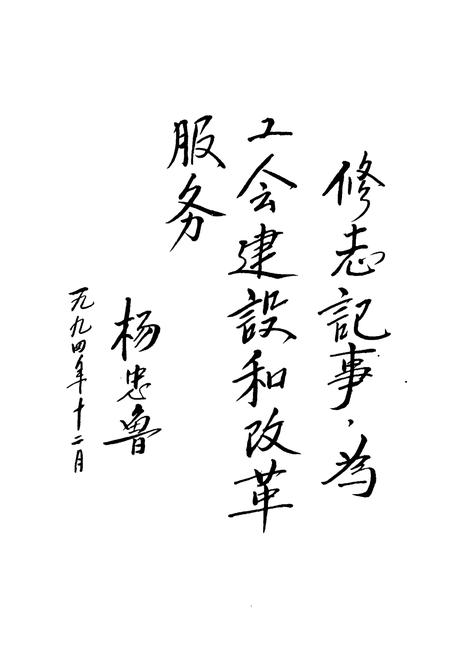 修志記事，为
工会建設和改革
服务
杨忠鲁
一九九四年十二月